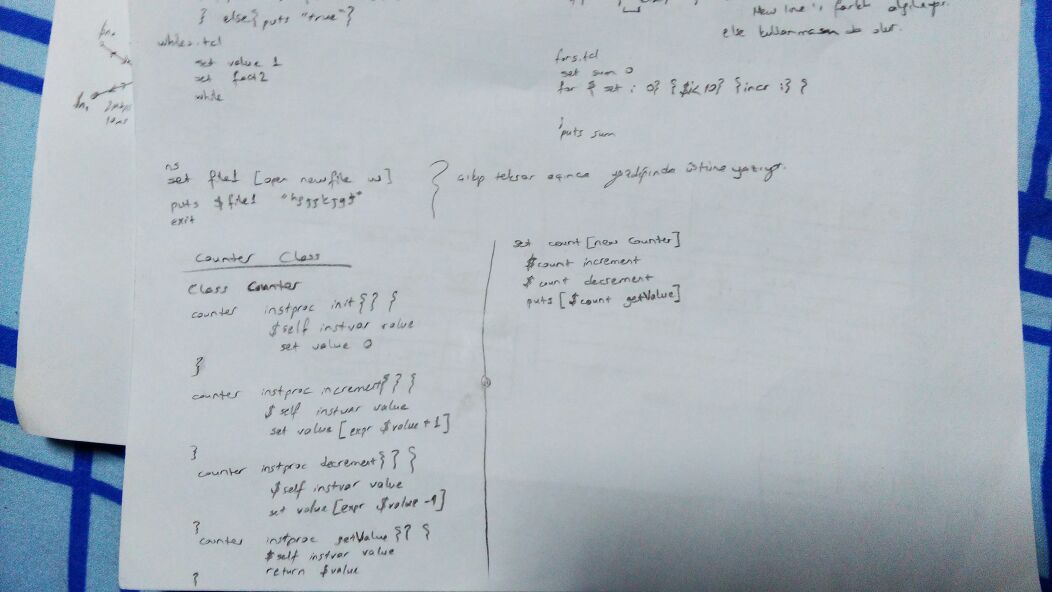 } else{ puts "true"}
New line'ı farklı algılıyor.
else kullanmasan da olur.
while2.tcl
set value 1
set fact 2
while
for5.tcl
set sum 0
for { set i 0} {$i<10} {incr i} {
}
puts sum
ns
set file1 [open newfile w]
puts $file1
exit
açıp tekrar açınca yazdığında üstüne yazıyor.
Counter Class
Class Counter
counter instproc init{} {
$self instvar value
set value 0
}
counter instproc increment{} {
$self instvar value
set value [expr $value+1]
}
counter instproc decrement{} {
$self instvar value
set value [expr $value-1]
}
counter instproc getValue {} {
$self instvar value
return $value
}
set count [new Counter]
$count increment
$count decrement
puts [$count getValue]